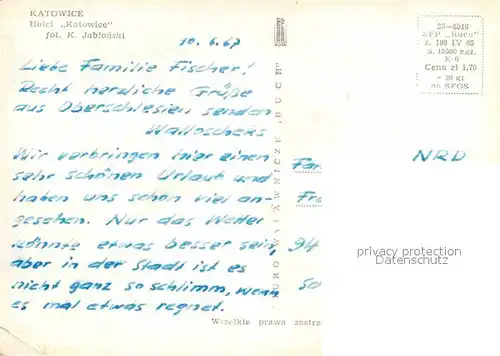 KATOWICE
Hotel „Katowice"
fot. K. Jabłoński
10.6.67
Liebe Familie Fischer!
Recht herzliche Grüße
aus Oberschlesien senden
Walloscheks
Wir verbringen hier einen
sehr schönen Urlaub und
haben uns schon viel an-
gesehen. Nur das Wetter
könnte etwas besser sein,
aber in der Stadt ist es
nicht ganz so schlimm, wenn
es mal etwas regnet.
BIURO WYDAWNICZE „RUCH"
23-3516
RPP „Ruch"
z. 198 IV 65
s. 10000 egz.
K-6
Cena zł 1.70
+ 20 gr
na SFOS
NRD
Fam
Fr
94
privacy protection
Datenschutz
Wszelkie prawa zastrz